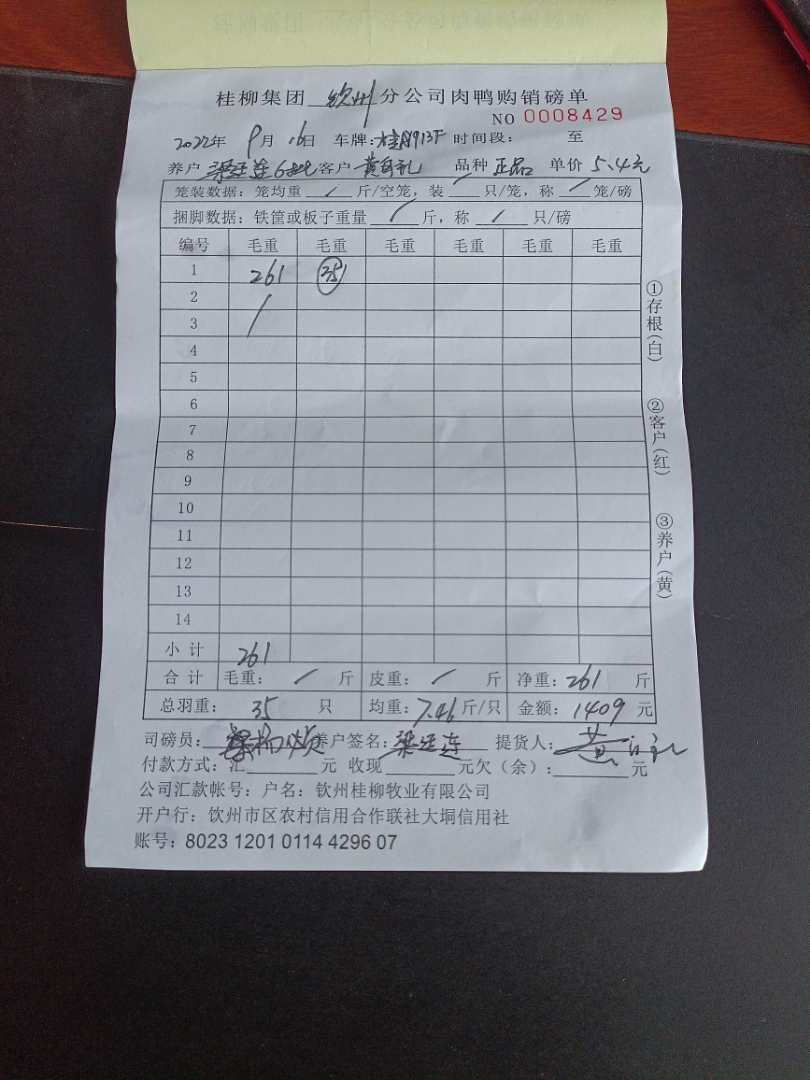 桂柳集团 钦州 分公司肉鸭购销磅单
NO 0008429
2022年 9月 16日 车牌: 时间段: 至
养户 梁廷连 客户 黄自礼 品种 正品 单价 5.4元
笼装数据: 笼均重 / 斤/空笼, 装 / 只/笼, 称 / 笼/磅
捆脚数据: 铁筐或板子重量 / 斤, 称 / 只/磅
编号 毛重 毛重 毛重 毛重 毛重 毛重
1 261 35
2 /
3
4
5
6
7
8
9
10
11
12
13
14
小计 261
合计 毛重: / 斤 皮重: / 斤 净重: 261 斤
总羽重: 35 只 均重: 7.46斤/只 金额: 1409 元
司磅员: 养户签名: 梁廷连 提货人: 黄自礼
付款方式: 汇 元 收现 元欠(余): 元
公司汇款帐号: 户名: 钦州桂柳牧业有限公司
开户行: 钦州市区农村信用合作联社大垌信用社
账号: 8023 1201 0114 4296 07
①存根(白)
②客户(红)
③养户(黄)